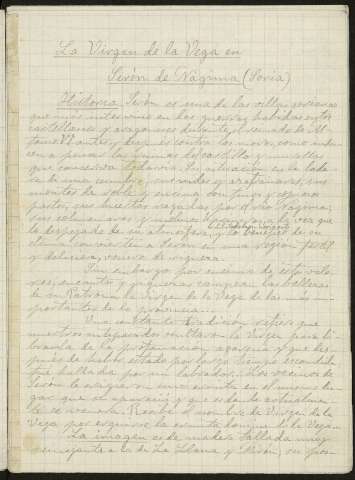 La Virgen de la Vega en
Serón de Nágima (Soria)
Historia. Serón es una de las villas sorianas
que más intervino en las guerras habidas entre
castellanos y aragoneses durante el reinado de Al-
fonso VII antes, y después contra los moros, como
a penas las ruinas del castillo y murallas
que conserva todavía. Su situación en la lade-
ra de una
montes de roble y encina con y
pastos, sus huertas regadas por el río Nágima,
sus colmenares y molinos a la vez que
lo despejado de su atmósfera y lo benigno de su
clima convierten a Serón en una región fértil
y deliciosa, venero de riqueza.
Sin embargo por encima de estos valo-
res, encantos y riquezas campean las bellezas
de su Patrona la Virgen de la Vega de las más im-
portantes de la provincia.
Una constante tradición refiere que
nuestros antepasados ocultaron la Virgen para li-
brarla de la profanación agarena y que des-
pués de haber estado por largo tiempo escondida
fué hallada por un labrador. Los vecinos de
Serón le erigieron una ermita en el mismo lu-
gar que se apareció y que es donde actualmen-
te se venera. Recibe el nombre de Virgen de la
Vega por erguirse la ermita donde la Vega.
La imagen es de madera tallada muy
semejante a la de La Llana y Mirón, en pos-